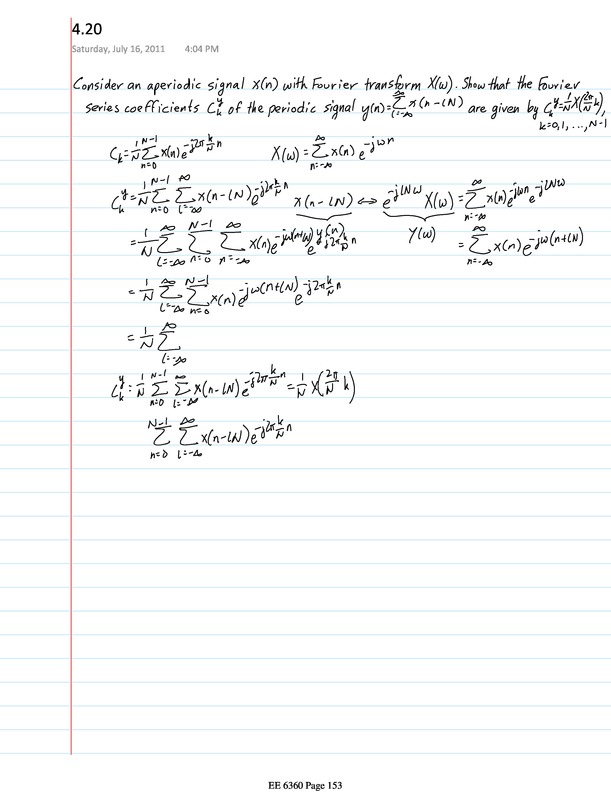 4.20
Saturday, July 16, 2011 4:04 PM
Consider an aperiodic signal x(n) with Fourier transform X(ω). Show that the Fourier
series coefficients C_k^y of the periodic signal y(n)=∑_{l=-∞}^{∞} x(n-lN) are given by C_k^y=1/N X(2π/N k),
k=0,1,...,N-1
C_k=1/N ∑_{n=0}^{N-1} x(n)e^{-j2π k/N n} X(ω)=∑_{n=-∞}^{∞} x(n)e^{-jωn}
C_k^y=1/N ∑_{n=0}^{N-1} ∑_{l=-∞}^{∞} x(n-lN)e^{-j2π k/N n} x(n-lN) ⟺ e^{-jlNω} X(ω) =∑_{n=-∞}^{∞} x(n)e^{-jωn}e^{-jlNω}
y(n) Y(ω)
=1/N ∑_{l=-∞}^{∞} ∑_{n=0}^{N-1} ∑_{n=-∞}^{∞} x(n)e^{-jω(n+lN)}e^{-j2π k/N n} =∑_{n=-∞}^{∞} x(n)e^{-jω(n+lN)}
=1/N ∑_{l=-∞}^{∞} ∑_{n=0}^{N-1} x(n)e^{-jω(n+lN)}e^{-j2π k/N n}
=1/N ∑_{l=-∞}^{∞}
C_k^y=1/N ∑_{n=0}^{N-1} ∑_{l=-∞}^{∞} x(n-lN)e^{-j2π k/N n}=1/N X(2π/N k)
∑_{n=0}^{N-1} ∑_{l=-∞}^{∞} x(n-lN)e^{-j2π k/N n}
EE 6360 Page 153